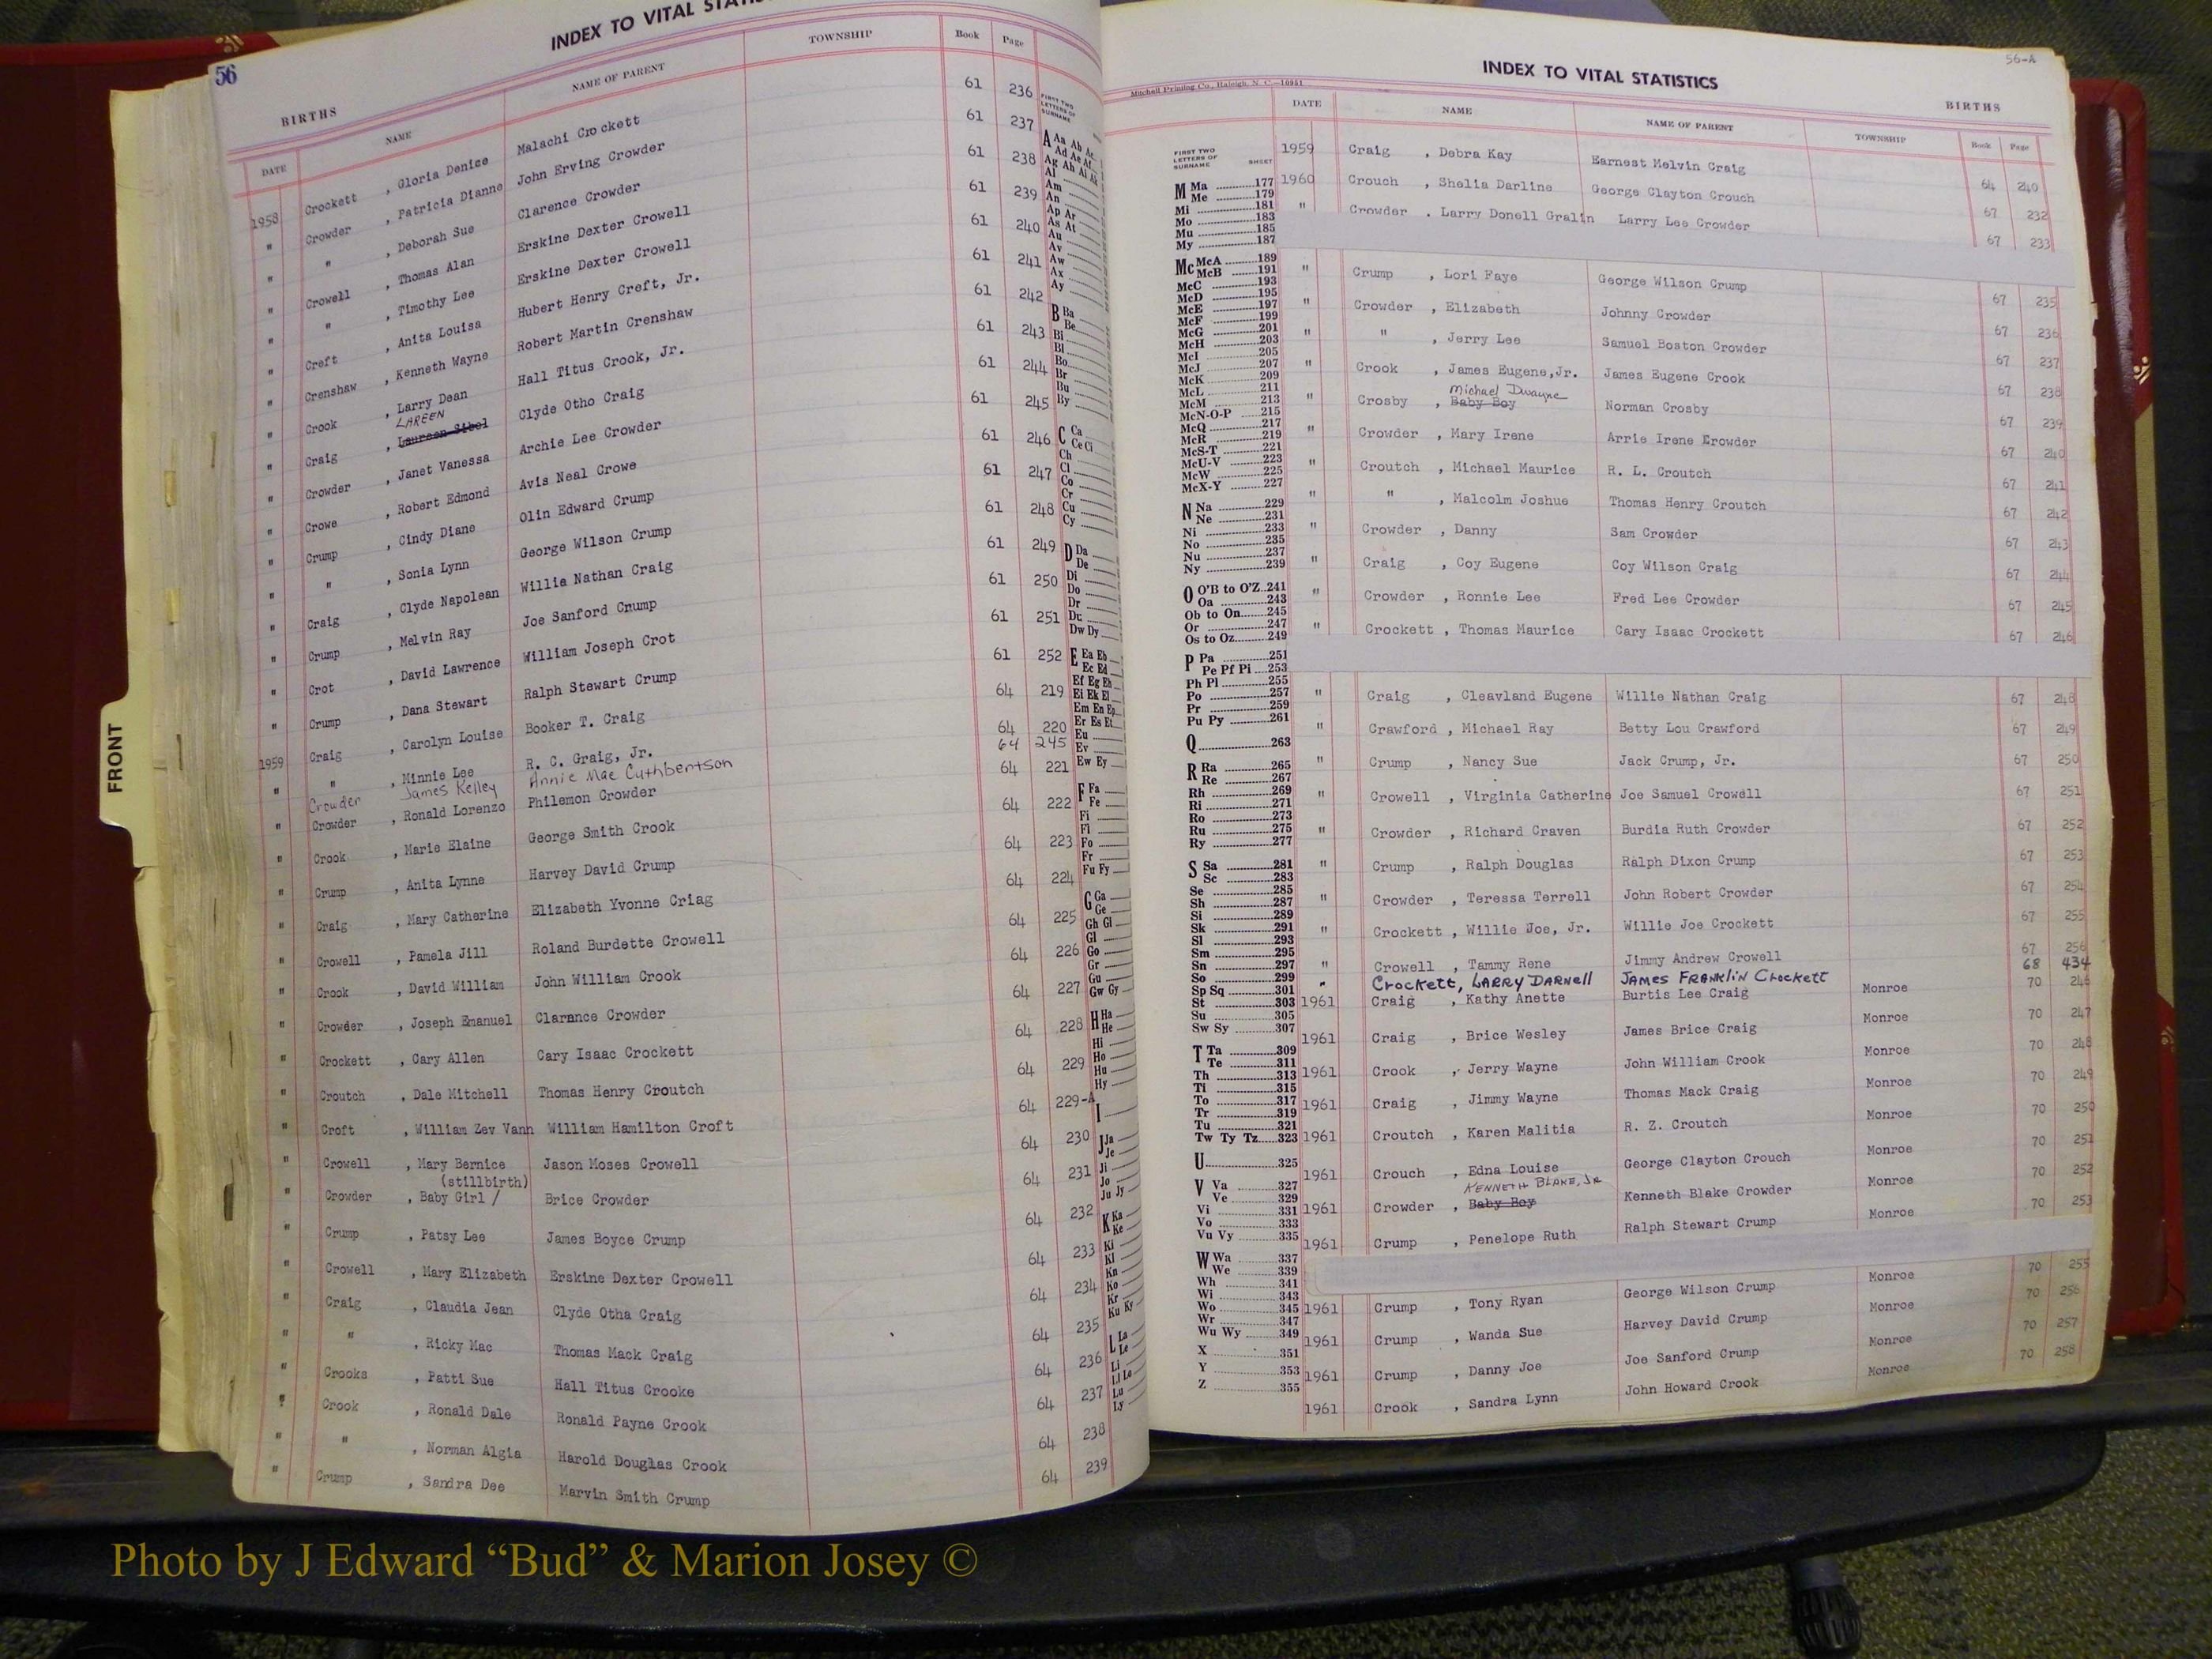 56
INDEX TO VITAL
BIRTHS
DATE NAME NAME OF PARENT TOWNSHIP Book Page
1958 Crockett , Gloria Denice Malachi Crockett 61 236
" Crowder , Patricia Dianne John Erving Crowder 61 237
" " , Deborah Sue Clarence Crowder 61 238
" Crowell , Thomas Alan Erskine Dexter Crowell 61 239
" " , Timothy Lee Erskine Dexter Crowell 61 240
" Creft , Anita Louisa Hubert Henry Creft, Jr. 61 241
" Crenshaw , Kenneth Wayne Robert Martin Crenshaw 61 242
" Crook , Larry Dean Hall Titus Crook, Jr. 61 243
LAREEN
" Craig , Laureen Sibel Clyde Otho Craig 61 244
" Crowder , Janet Vanessa Archie Lee Crowder 61 245
" Crowe , Robert Edmond Avis Neal Crowe 61 246
" Crump , Cindy Diane Olin Edward Crump 61 247
" " , Sonia Lynn George Wilson Crump 61 248
" Craig , Clyde Napolean Willie Nathan Craig 61 249
" Crump , Melvin Ray Joe Sanford Crump 61 250
" Crot , David Lawrence William Joseph Crot 61 251
" Crump , Dana Stewart Ralph Stewart Crump 61 252
1959 Craig , Carolyn Louise Booker T. Craig 64 219
" " , Minnie Lee R. C. Graig, Jr. 64 220
Crowder James Kelley Annie Mae Cuthbertson 64 245
" Crowder , Ronald Lorenzo Philemon Crowder 64 221
" Crook , Marie Elaine George Smith Crook 64 222
" Crump , Anita Lynne Harvey David Crump 64 223
" Craig , Mary Catherine Elizabeth Yvonne Criag 64 224
" Crowell , Pamela Jill Roland Burdette Crowell 64 225
" Crook , David William John William Crook 64 226
" Crowder , Joseph Emanuel Clarance Crowder 64 227
" Crockett , Cary Allen Cary Isaac Crockett 64 228
" Croutch , Dale Mitchell Thomas Henry Croutch 64 229
" Croft , William Zev Vann William Hamilton Croft 64 229-A
" Crowell , Mary Bernice Jason Moses Crowell 64 230
(stillbirth)
" Crowder , Baby Girl / Brice Crowder 64 231
" Crump , Patsy Lee James Boyce Crump 64 232
" Crowell , Mary Elizabeth Erskine Dexter Crowell 64 233
" Craig , Claudia Jean Clyde Otha Craig 64 234
" " , Ricky Mac Thomas Mack Craig 64 235
" Crooks , Patti Sue Hall Titus Crooke 64 236
" Crook , Ronald Dale Ronald Payne Crook 64 237
" " , Norman Algia Harold Douglas Crook 64 238
" Crump , Sandra Dee Marvin Smith Crump 64 239
FIRST TWO
LETTERS OF
SURNAME
A Aa Ab Ac
Ad Ae Af
Ag Ah Ai Ak
Al
Am
An
Ap Ar
As At
Au
Av
Aw
Ax
Ay
B Ba
Be
Bi
Bl
Bo
Br
Bu
By
C Ca
Ce Ci
Ch
Cl
Co
Cr
Cu
Cy
D Da
De
Di
Do
Dr
Du
Dw Dy
E Ea Eb
Ec Ed
Ef Eg Eh
Ei Ek El
Em En Ep
Er Es Et
Eu
Ev
Ew Ey
F Fa
Fe
Fi
Fl
Fo
Fr
Fu Fy
G Ga
Ge
Gh Gi
Gl
Go
Gr
Gu
Gw Gy
H Ha
He
Hi
Ho
Hu
Hy
I
J Ja
Je
Ji
Jo
Ju Jy
K Ka
Ke
Ki
Kl
Kn
Ko
Kr
Ku Ky
L La
Le
Li
Ll Lo
Lu
Ly
FRONT
56-A
INDEX TO VITAL STATISTICS
Mitchell Printing Co., Raleigh, N. C.—10951
BIRTHS
DATE NAME NAME OF PARENT TOWNSHIP Book Page
1959 Craig , Debra Kay Earnest Melvin Craig 64 240
1960 Crouch , Shelia Darline George Clayton Crouch 67 232
" Crowder , Larry Donell Gralin Larry Lee Crowder 67 233
" Crump , Lori Faye George Wilson Crump 67 235
" Crowder , Elizabeth Johnny Crowder 67 236
" " , Jerry Lee Samuel Boston Crowder 67 237
" Crook , James Eugene,Jr. James Eugene Crook 67 238
Michael Dwayne
" Crosby , Baby Boy Norman Crosby 67 239
" Crowder , Mary Irene Arrie Irene Erowder 67 240
" Croutch , Michael Maurice R. L. Croutch 67 241
" " , Malcolm Joshue Thomas Henry Croutch 67 242
" Crowder , Danny Sam Crowder 67 243
" Craig , Coy Eugene Coy Wilson Craig 67 244
" Crowder , Ronnie Lee Fred Lee Crowder 67 245
" Crockett , Thomas Maurice Cary Isaac Crockett 67 246
" Craig , Cleavland Eugene Willie Nathan Craig 67 248
" Crawford , Michael Ray Betty Lou Crawford 67 249
" Crump , Nancy Sue Jack Crump, Jr. 67 250
" Crowell , Virginia Catherine Joe Samuel Crowell 67 251
" Crowder , Richard Craven Burdia Ruth Crowder 67 252
" Crump , Ralph Douglas Ralph Dixon Crump 67 253
" Crowder , Teressa Terrell John Robert Crowder 67 254
" Crockett , Willie Joe, Jr. Willie Joe Crockett 67 255
" Crowell , Tammy Rene Jimmy Andrew Crowell 67 256
" Crockett, LARRY DARNell JAMES FRANKliN CRockett 68 434
1961 Craig , Kathy Anette Burtis Lee Craig Monroe 70 246
1961 Craig , Brice Wesley James Brice Craig Monroe 70 247
1961 Crook , Jerry Wayne John William Crook Monroe 70 248
1961 Craig , Jimmy Wayne Thomas Mack Craig Monroe 70 249
1961 Croutch , Karen Malitia R. Z. Croutch Monroe 70 250
1961 Crouch , Edna Louise George Clayton Crouch Monroe 70 251
KENNETH BLAKE, JR
1961 Crowder , Baby Boy Kenneth Blake Crowder Monroe 70 252
1961 Crump , Penelope Ruth Ralph Stewart Crump Monroe 70 253
1961 Crump , Tony Ryan George Wilson Crump Monroe 70 255
1961 Crump , Wanda Sue Harvey David Crump Monroe 70 256
1961 Crump , Danny Joe Joe Sanford Crump Monroe 70 257
1961 Crook , Sandra Lynn John Howard Crook Monroe 70 258
FIRST TWO
LETTERS OF
SURNAME SHEET
M Ma 177
Me 179
Mi 181
Mo 183
Mu 185
My 187
Mc McA 189
McB 191
McC 193
McD 195
McE 197
McF 199
McG 201
McH 203
McI 205
McJ 207
McK 209
McL 211
McM 213
McN-O-P 215
McQ 217
McR 219
McS-T 221
McU-V 223
McW 225
McX-Y 227
N Na 229
Ne 231
Ni 233
No 235
Nu 237
Ny 239
O O'B to O'Z 241
Oa 243
Ob to On 245
Or 247
Os to Oz 249
P Pa 251
Pe Pf Pi 253
Ph Pl 255
Po 257
Pr 259
Pu Py 261
Q 263
R Ra 265
Re 267
Rh 269
Ri 271
Ro 273
Ru 275
Ry 277
S Sa 281
Sc 283
Se 285
Sh 287
Si 289
Sk 291
Sl 293
Sm 295
Sn 297
So 299
Sp Sq 301
St 303
Su 305
Sw Sy 307
T Ta 309
Te 311
Th 313
Ti 315
To 317
Tr 319
Tu 321
Tw Ty Tz 323
U 325
V Va 327
Ve 329
Vi 331
Vo 333
Vu Vy 335
W Wa 337
We 339
Wh 341
Wi 343
Wo 345
Wr 347
Wu Wy 349
X 351
Y 353
Z 355
Photo by J Edward “Bud” & Marion Josey ©